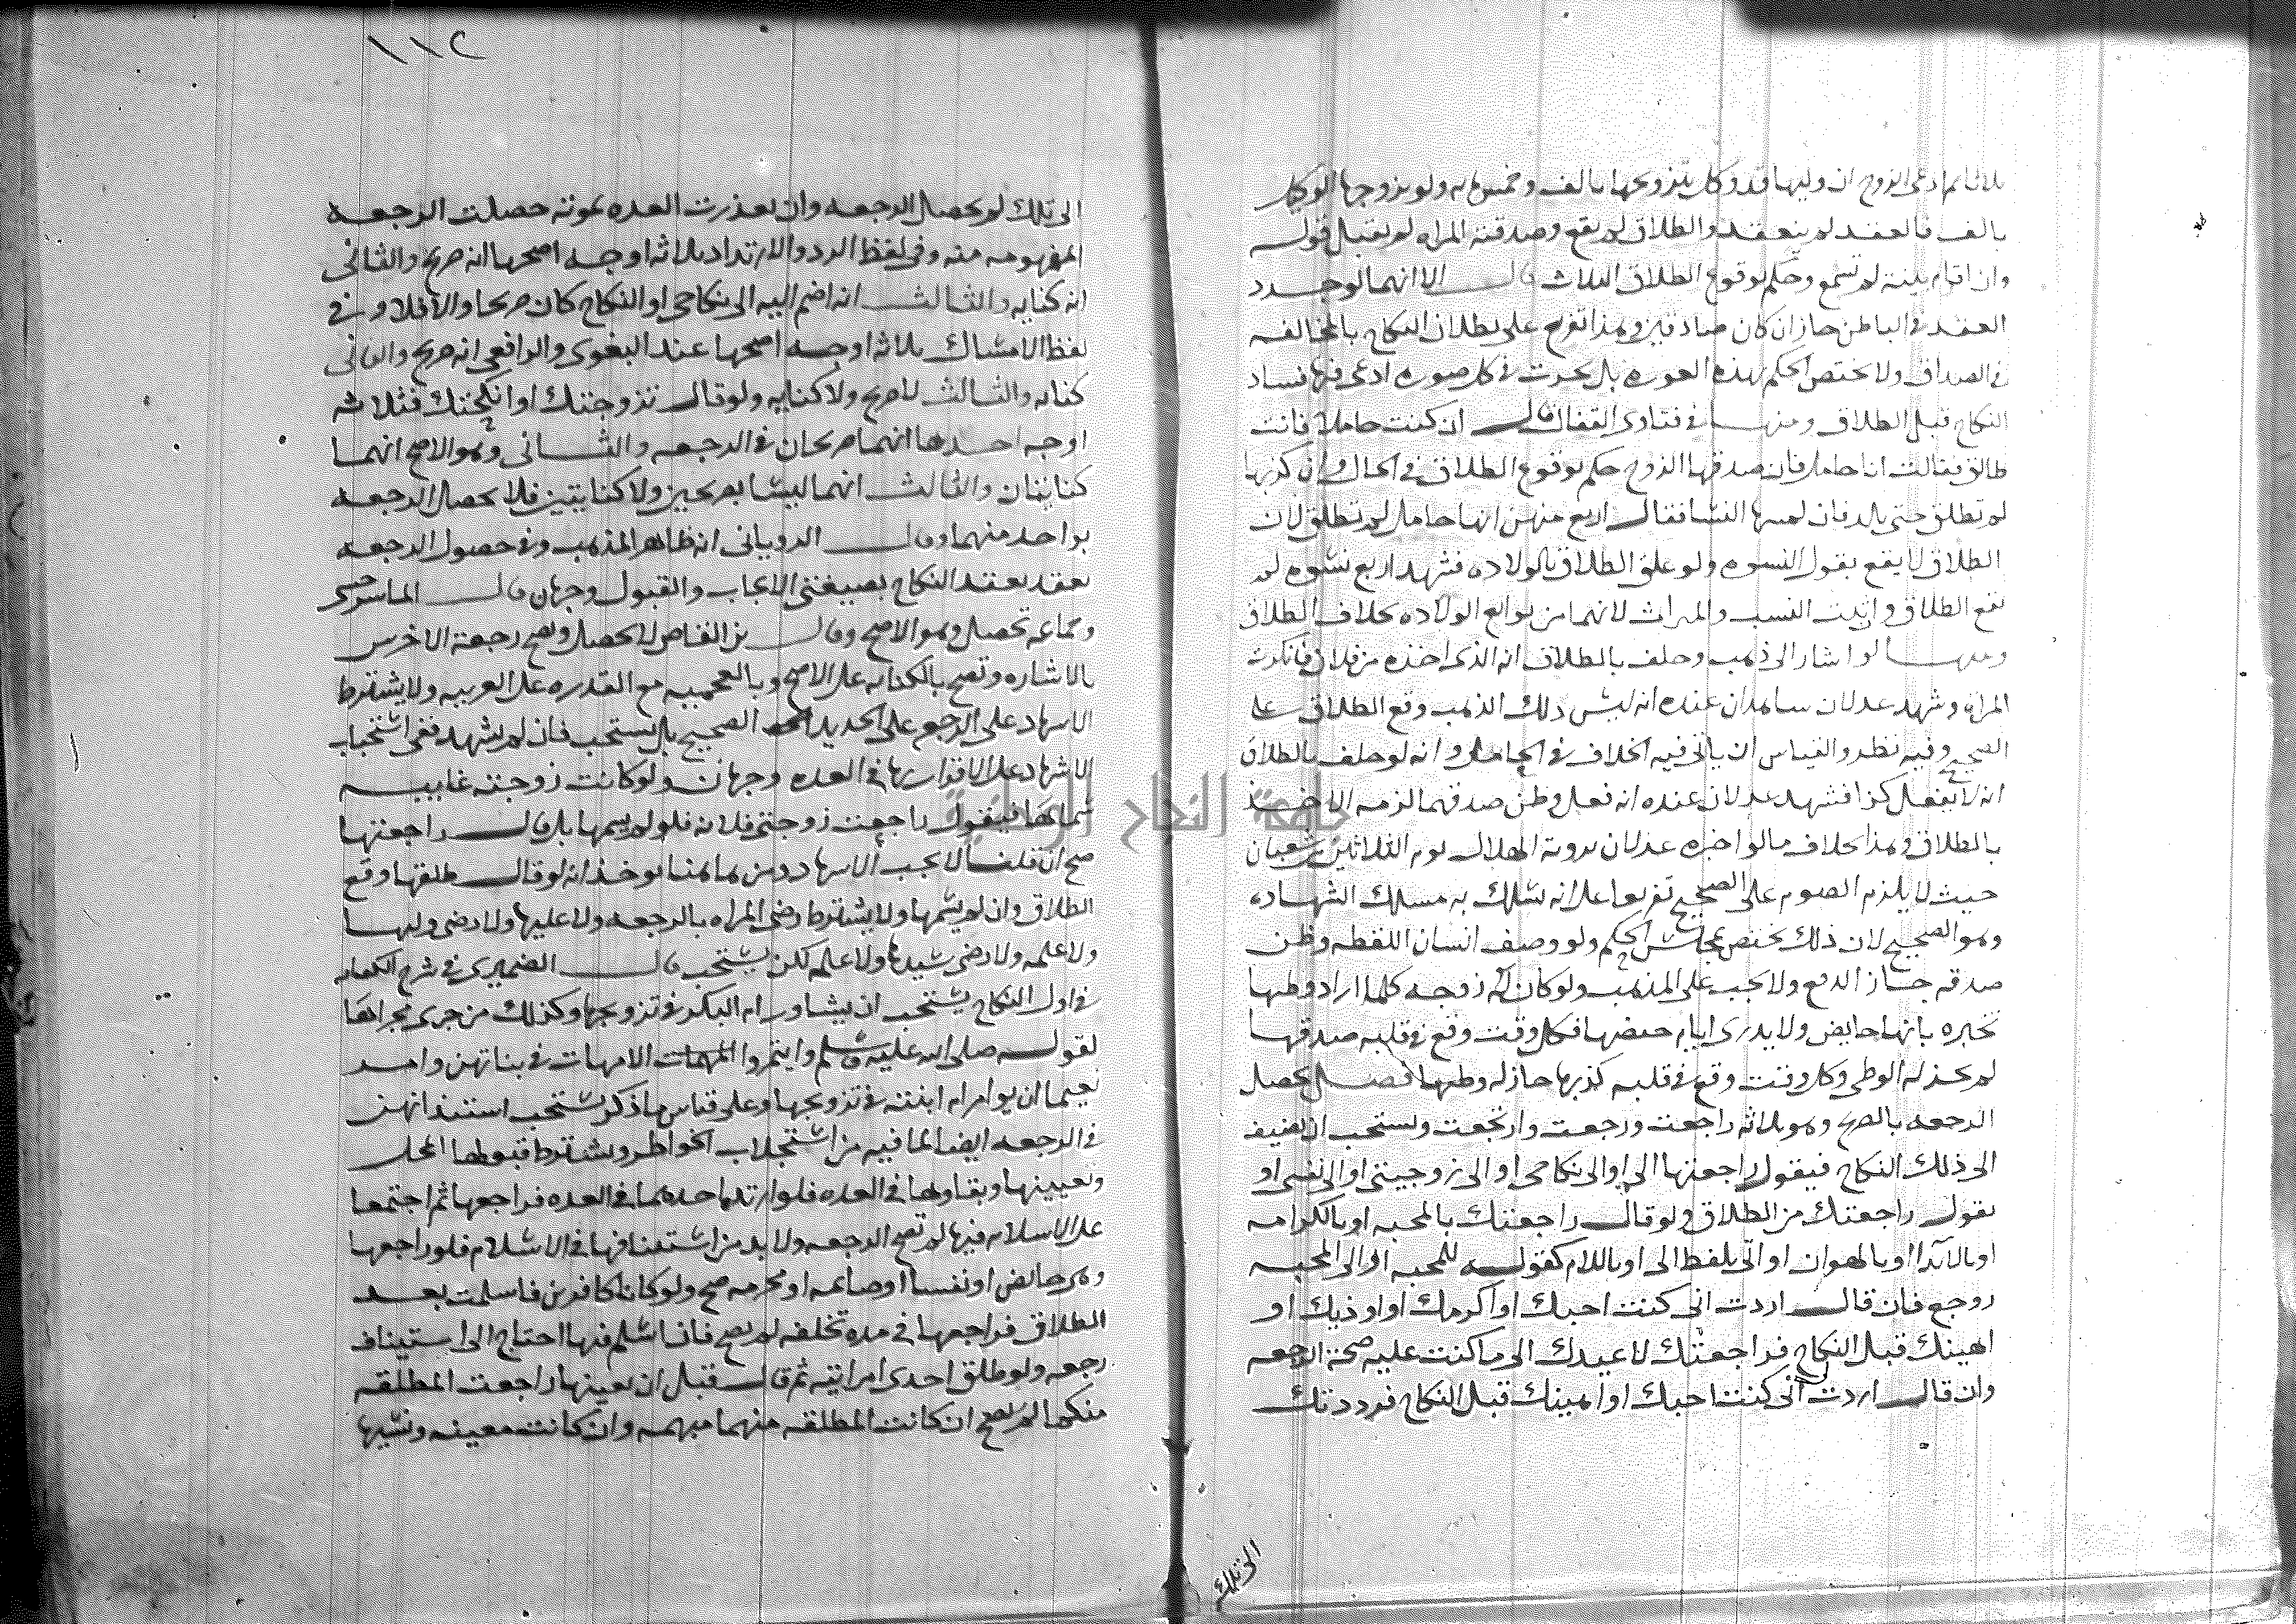 ثلاثا ثم ادعى الزوج ان وليها قد وكل بتزويجها بالف وخمس مايه ولو بزوجها الوكيل
بالف فالعقد لم ينعقد والطلاق لم يقع وصدقته المراه لم يقبل قوله
وان اقام بينة لم تسمع وحكم بوقوع الطلاق الثلاث قال الا انهما لو جدد
العقد في الباطن جاز ان كان صادقين وهذا تفرع على بطلان النكاح بالمخالفه
في الصداق ولا يختص الحكم بهذه الصوره بل يجرى في كل صوره ادعى فيها فساد
النكاح قبل الطلاق ومنها في فتاوى القفال قال ان كنت حاملا فانت
طالق فقالت انا حامل فان صدقها الزوج حكم بوقوع الطلاق في الحال وان كذبها
لم تطلق حتى يلد فان لمسها النسا فقال اربع منهن انها حامل لم تطلق لان
الطلاق لا يقع بقول النسوه ولو علق الطلاق بالولاده فشهد اربع نسوه لم
يقع الطلاق وان ثبت النسب والميراث لانهما من توابع الولاده بخلاف الطلاق
ومنها لو اشار الى ذهب وحلف بالطلاق انه الذى اخذه من فلان فانكرت
المراه وشهد عدلان شاهدان عنده انه ليس ذلك الذهب وقع الطلاق على
الصحيح وفيه نظر والقياس ان ياتى فيه الخلاف في الجاهل وانه لو حلف بالطلاق
انه لا يفعل كذا فشهد عدلان عنده انه فعل وظن صدقهما لزمه الاخذ
بالطلاق وهذا بخلاف ما لو اخبره عدلان بروية الهلال يوم الثلاثين من شعبان
حيث لا يلزم الصوم على الصحيح تفريعا على انه يسلك به مسلك الشهاده
وهو الصحيح لان ذلك يختص بمجلس الحكم ولو وصف انسان اللقطه وظن
صدقه جاز الدفع ولا يجب على المذهب ولو كان له زوجه كلما اراد وطيها
تخبره بانها حايض ولا يدرى ايام حيضها فكل وقت وقع في قلبه صدقها
لم يجز له الوطى وكل وقت وقع في قلبه كذبها جاز له وطيها فصل يحصل
الرجعه بالصريح وهو ثلاثه راجعت ورجعت وارتجعت ويستحب ان يضيف
الى ذلك النكاح فيقول راجعتها الى او الى نكاحى او الى زوجيتى او الى نفسى او
يقول راجعتك من الطلاق ولو قال راجعتك بالمحبه او بالكرامه
او بالاذا او بالهوان او اتى بلفظ الى او باللام كقوله للمحبه او الى المحبه
روجع فان قال اردت انى كنت احبك او اكرمك او اوذيك او
اهينك قبل النكاح فراجعتك لاعيدك الى ما كنت عليه صحة الرجعه
وان قال اردت انى كنت احبك او اهينك قبل النكاح فرددتك
الى تلك
١١٢
الى تلك لم يحصل الرجعه وان تعذرت العده بموته حصلت الرجعه
المفهومه منه وفي لفظ الرد والارتداد ثلاثه اوجه اصحها انه صريح والثانى
انه كنايه والثالث انه اضم اليه الى نكاحى او النكاح كان صريحا والا فلا وفي
لفظ الامساك ثلاثه اوجه اصحها عند البغوى والرافعى انه صريح والثانى
كنايه والثالث لا صريح ولا كنايه ولو قال تزوجتك او انكحتك فثلاثه
اوجه احدها انهما صريحان في الرجعه والثانى وهو الاصح انهما
كنايتان والثالث انهما ليسا بصريحين ولا كنايتين فلا يحصل الرجعه
بواحد منهما وقال الرويانى انه ظاهر المذهب وفي حصول الرجعه
بعقد بعقد النكاح بصيغتى الايجاب والقبول وجهان قال الماسرجسى
وجماعه تحصل وهو الاصح وقال بن القاص لا يحصل وتصح رجعة الاخرس
بالاشاره وتصح بالكنايه على الاصح وبالعجميه مع القدره على العربيه ولا يشترط
الاشهاد على الرجع على الجديد الصحيح بل يستحب فان لم يشهد ففي استحباب
الاشهاد على الاقرار بها في العده وجهان ولو كانت زوجته غايبه
سماها فيقول راجعت زوجتى فلانه فلو لم يسمها بل قال راجعتها
صح ان قلنا لا يجب الاشهاد ومن هاهنا يوخذ انه لو قال طلقها وقع
الطلاق وان لم يسمها ولا يشترط رضى المراه بالرجعه ولا عليها ولا رضى وليها
ولا علمه ولا رضى سيدها ولا علمه لكن يستحب قال الضميرى في شرح الكفايه
في اول النكاح يستحب ان يشاور ام البكر في تزويجها وكذلك من جرى مجراها
لقوله صلى الله عليه وسلم وايتمروا الامهات في بناتهن وامر
نعيما ان يوامر ام ابنته في تزويجها وعلى قياس ما ذكر يستحب استيذانهن
في الرجعه ايضا لما فيه من استجلاب الخواطر ويشترط قبولها المحل
وتعيينها وبقاوها في العده فلو ارتد احدهما في العده فراجعها ثم اجتمعا
على الاسلام فيها لم تصح الرجعه ولا بد من استينافها في الاسلام فلو راجعها
وهى حايض او نفسا او صايمه او محرمه صح ولو كانا كافرين فاسلمت بعد
الطلاق فراجعها في مده تخلفه لم يصح فاذا اسلم فيها احتاج الى استيناف
رجعه ولو طلق احدى امراتيه ثم قال قبل ان يعينها راجعت المطلقه
منكما لم يصح ان كانت المطلقه منهما مبهمه وان كانت معينه ونسيها
جامعة النجاح الوطنية